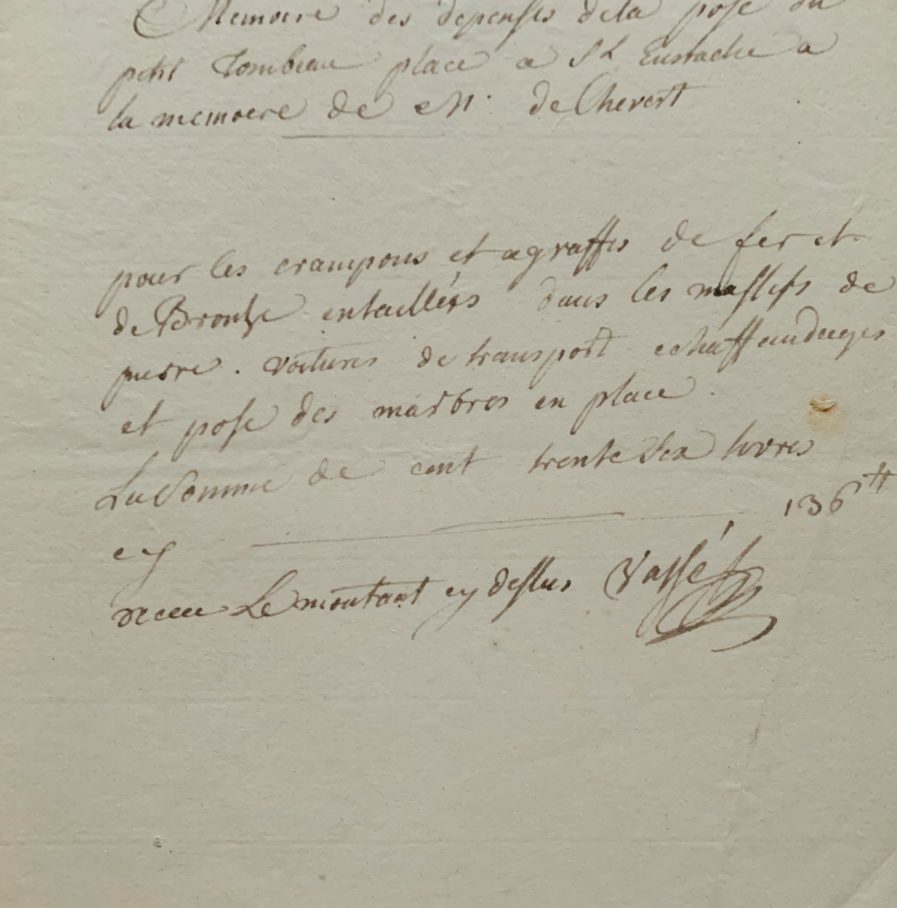 Memoire des depenses dela pose du
petit Tombeau place a St Eustache a
la memoere de M. de Chevert
pour les crampons et agraffes de fer et
de Brontze entaillées dans les massifs de
pierre. voitures de transport echaffaudages
et pose des marbres en place.
La Somme de cent trente Six livres
cy 136 ₶
receu Le montant cy dessus Vassé